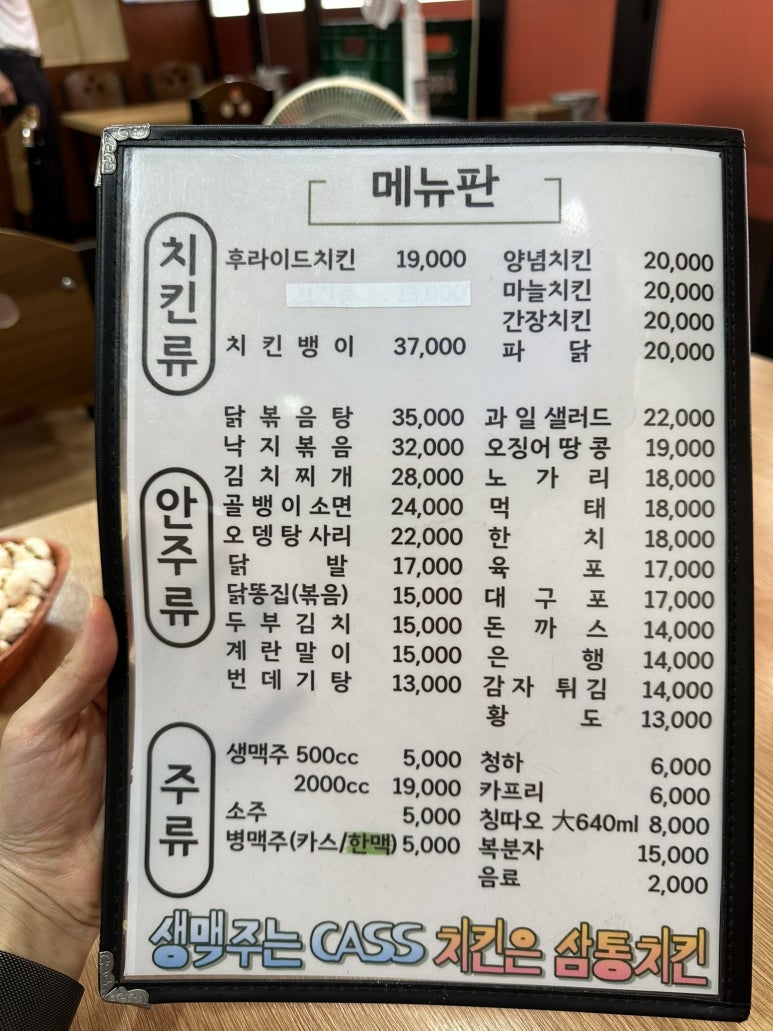 메뉴판
치킨류
후라이드치킨 19,000
치킨뱅이 37,000
양념치킨 20,000
마늘치킨 20,000
간장치킨 20,000
파닭 20,000
안주류
닭볶음탕 35,000
낙지볶음 32,000
김치찌개 28,000
골뱅이소면 24,000
오뎅탕사리 22,000
닭발 17,000
닭똥집(볶음) 15,000
두부김치 15,000
계란말이 15,000
번데기탕 13,000
과일샐러드 22,000
오징어땅콩 19,000
노가리 18,000
먹태 18,000
한치 18,000
육포 17,000
대구포 17,000
돈까스 14,000
은행 14,000
감자튀김 14,000
황도 13,000
주류
생맥주 500cc 5,000
2000cc 19,000
소주 5,000
병맥주(카스/한맥) 5,000
청하 6,000
카프리 6,000
칭따오 大640ml 8,000
복분자 15,000
음료 2,000
생맥주는 CASS 치킨은 삼통치킨